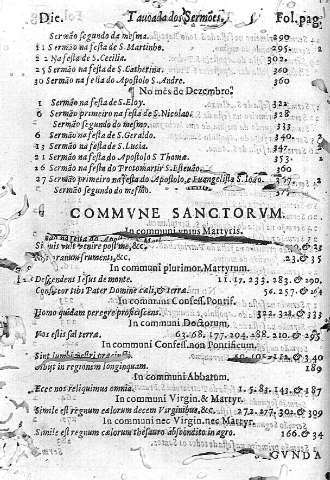 Dic. Tauoada dos Sermões. Fol. pag.
Sermão segundo da mesma. 290
11 Sermão na festa de S. Martinho. 295. 2
22 Na festa de S. Cecilia. 302.
25 Sermão na festa de S. Catherina. 360
30 Sermão na festa do Apostolo S. Andre. 360
¶ No mes de Dezembro.
1 Sermão na festa de S. Eloy. 322.
6 Sermão primeiro na festa de S. Nicolao. 328
Sermão segundo do mesmo. 333
6 Sermão na festa de S. Geraldo. 340. 2
13 Sermão na festa de S. Lucia. 347.
21 Sermão na festa do Apostolo S Thome. 353.
26 Sermão na festa do Protomartir S. Esteuão. 360
27 Sermão primeiro na festa do Apostolo, e Euangelista S. Ioão. 2
Sermão segundo do mesmo.
COMMVNE SANCTORVM.
In communi vnius Martyris.
Si quis vult venire post me, &c.
granum frumenti, &c. 23. & 35
In communi plurimor. Martyrum.
Descendens Iesus de monte. 11. 17. 233. 283. & 290
Confitor tibi Pater Domine cæli, & terræ. 56. 257. & 264
In communi Confess. Pontif.
Homo quidam peregre proficiscens. 322. 328. & 333
In communi Doctorum.
Vos estis sal terræ. 63. 68. 177. 204. 288. 210. & 295
In communi Confess. non Pontificum.
Sint lumbi vestri & 340
Abijt in regionem longinquam. 189
In communi Abbatum.
Ecce nos reliquimus omnia. 1. 58. 143. & 187
In communi Virgin. & Martyr.
Simile est regnum cælorum decem Virginibus, &c. 272. 277. 302. & 309
In communi nec Virgin. nec Martyr.
Simile est regnum cælorum thesauro abscondito in agro. 166. & 34
GVNDA